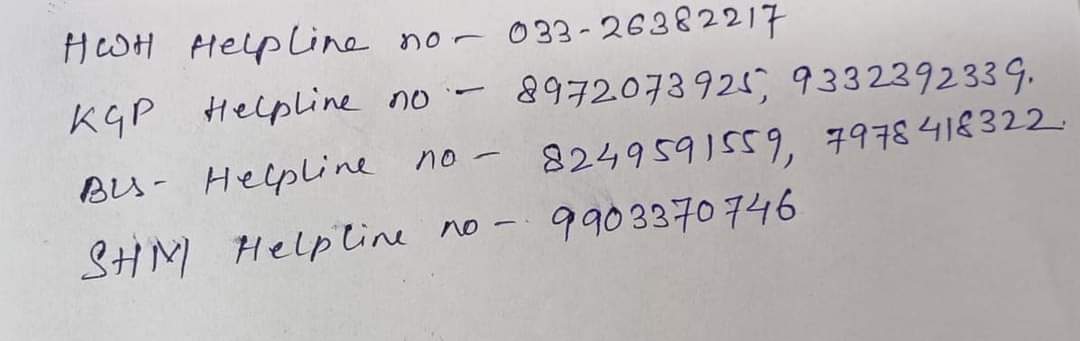 HWH Helpline no - 033-26382217
KGP Helpline no - 8972073925, 9332392339.
BLS- Helpline no - 8249591559, 7978418322.
SHM Helpline no - 9903370746